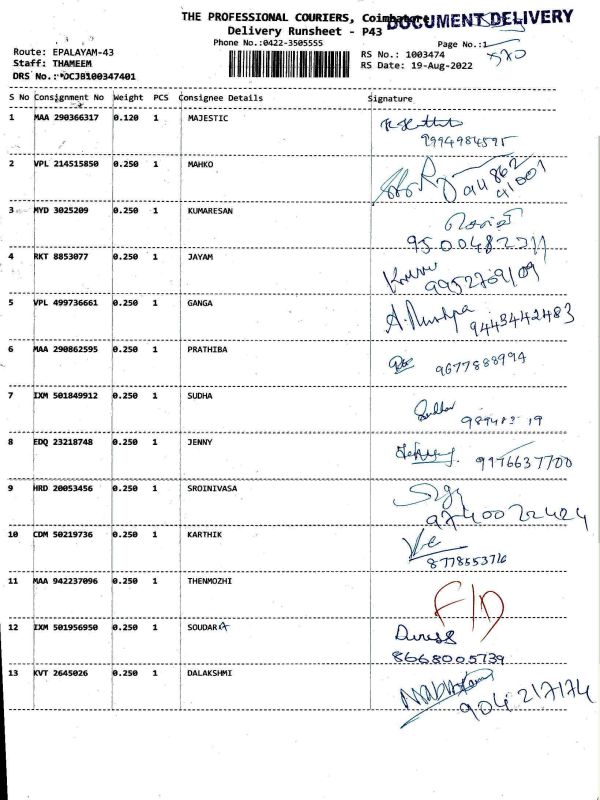 THE PROFESSIONAL COURIERS, Coimbatore
DOCUMENT DELIVERY
Delivery Runsheet - P43
Phone No.:0422-3505555
Page No.:1
570
Route: EPALAYAM-43
RS No.: 1003474
Staff: THAMEEM
RS Date: 19-Aug-2022
DRS No.: DCJB100347401
S No Consignment No Weight PCS Consignee Details Signature
1 MAA 290366317 0.120 1 MAJESTIC
9994984595
2 VPL 214515850 0.250 1 MAHKO
3 MYD 3025209 0.250 1 KUMARESAN
செல்வி
4 RKT 8853077 0.250 1 JAYAM
9952709109
5 VPL 499736661 0.250 1 GANGA
9443442483
6 MAA 290862595 0.250 1 PRATHIBA
9677888994
7 IXM 501849912 0.250 1 SUDHA
8 EDQ 23218748 0.250 1 JENNY
9176637700
9 HRD 20053456 0.250 1 SROINIVASA
9740022424
10 CDM 50219736 0.250 1 KARTHIK
8778553716
11 MAA 942237096 0.250 1 THENMOZHI
F/D
12 IXM 501956950 0.250 1 SOUDARA
8668005739
13 KVT 2645026 0.250 1 DALAKSHMI
904 217174